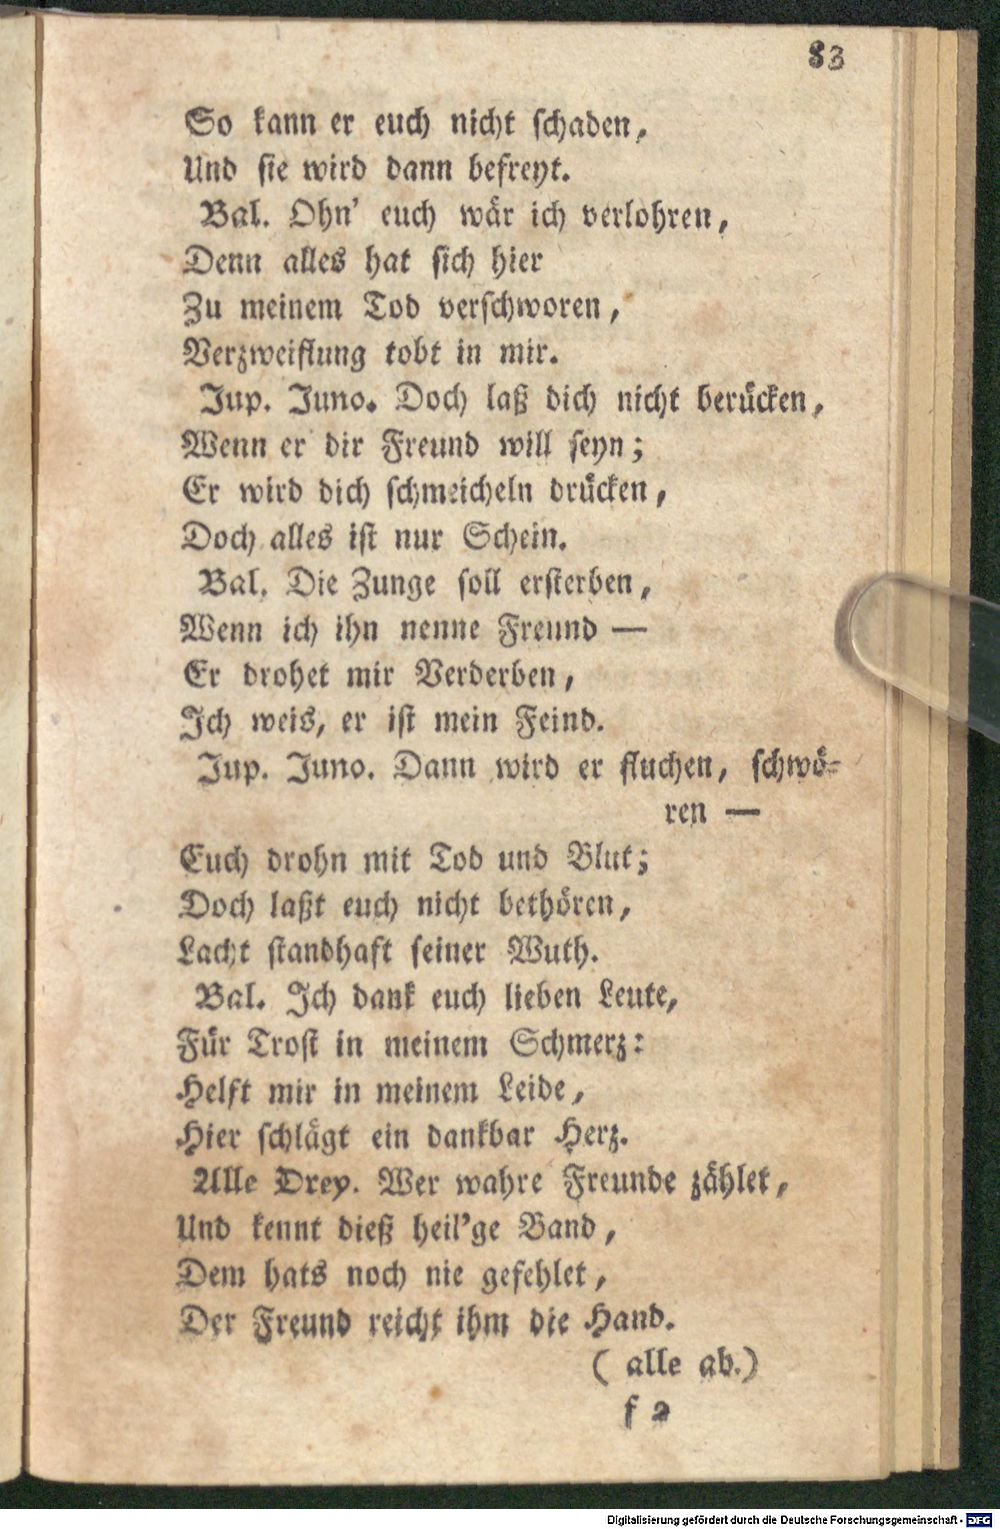 83
So kann er euch nicht schaden,
Und sie wird dann befreyt.
Bal. Ohn' euch wär ich verlohren,
Denn alles hat sich hier
Zu meinem Tod verschworen,
Verzweiflung tobt in mir.
Jup. Juno. Doch laß dich nicht berücken,
Wenn er dir Freund will seyn;
Er wird dich schmeicheln drücken,
Doch alles ist nur Schein.
Bal. Die Zunge soll ersterben,
Wenn ich ihn nenne Freund —
Er drohet mir Verderben,
Ich weis, er ist mein Feind.
Jup. Juno. Dann wird er fluchen, schwö-
ren —
Euch drohn mit Tod und Blut;
Doch laßt euch nicht bethören,
Lacht standhaft seiner Wuth.
Bal. Ich dank euch lieben Leute,
Für Trost in meinem Schmerz:
Helft mir in meinem Leide,
Hier schlägt ein dankbar Herz.
Alle Drey. Wer wahre Freunde zählet,
Und kennt dieß heil'ge Band,
Dem hats noch nie gefehlet,
Der Freund reicht ihm die Hand.
(alle ab.)
f 2
Digitalisierung gefördert durch die Deutsche Forschungsgemeinschaft - DFG